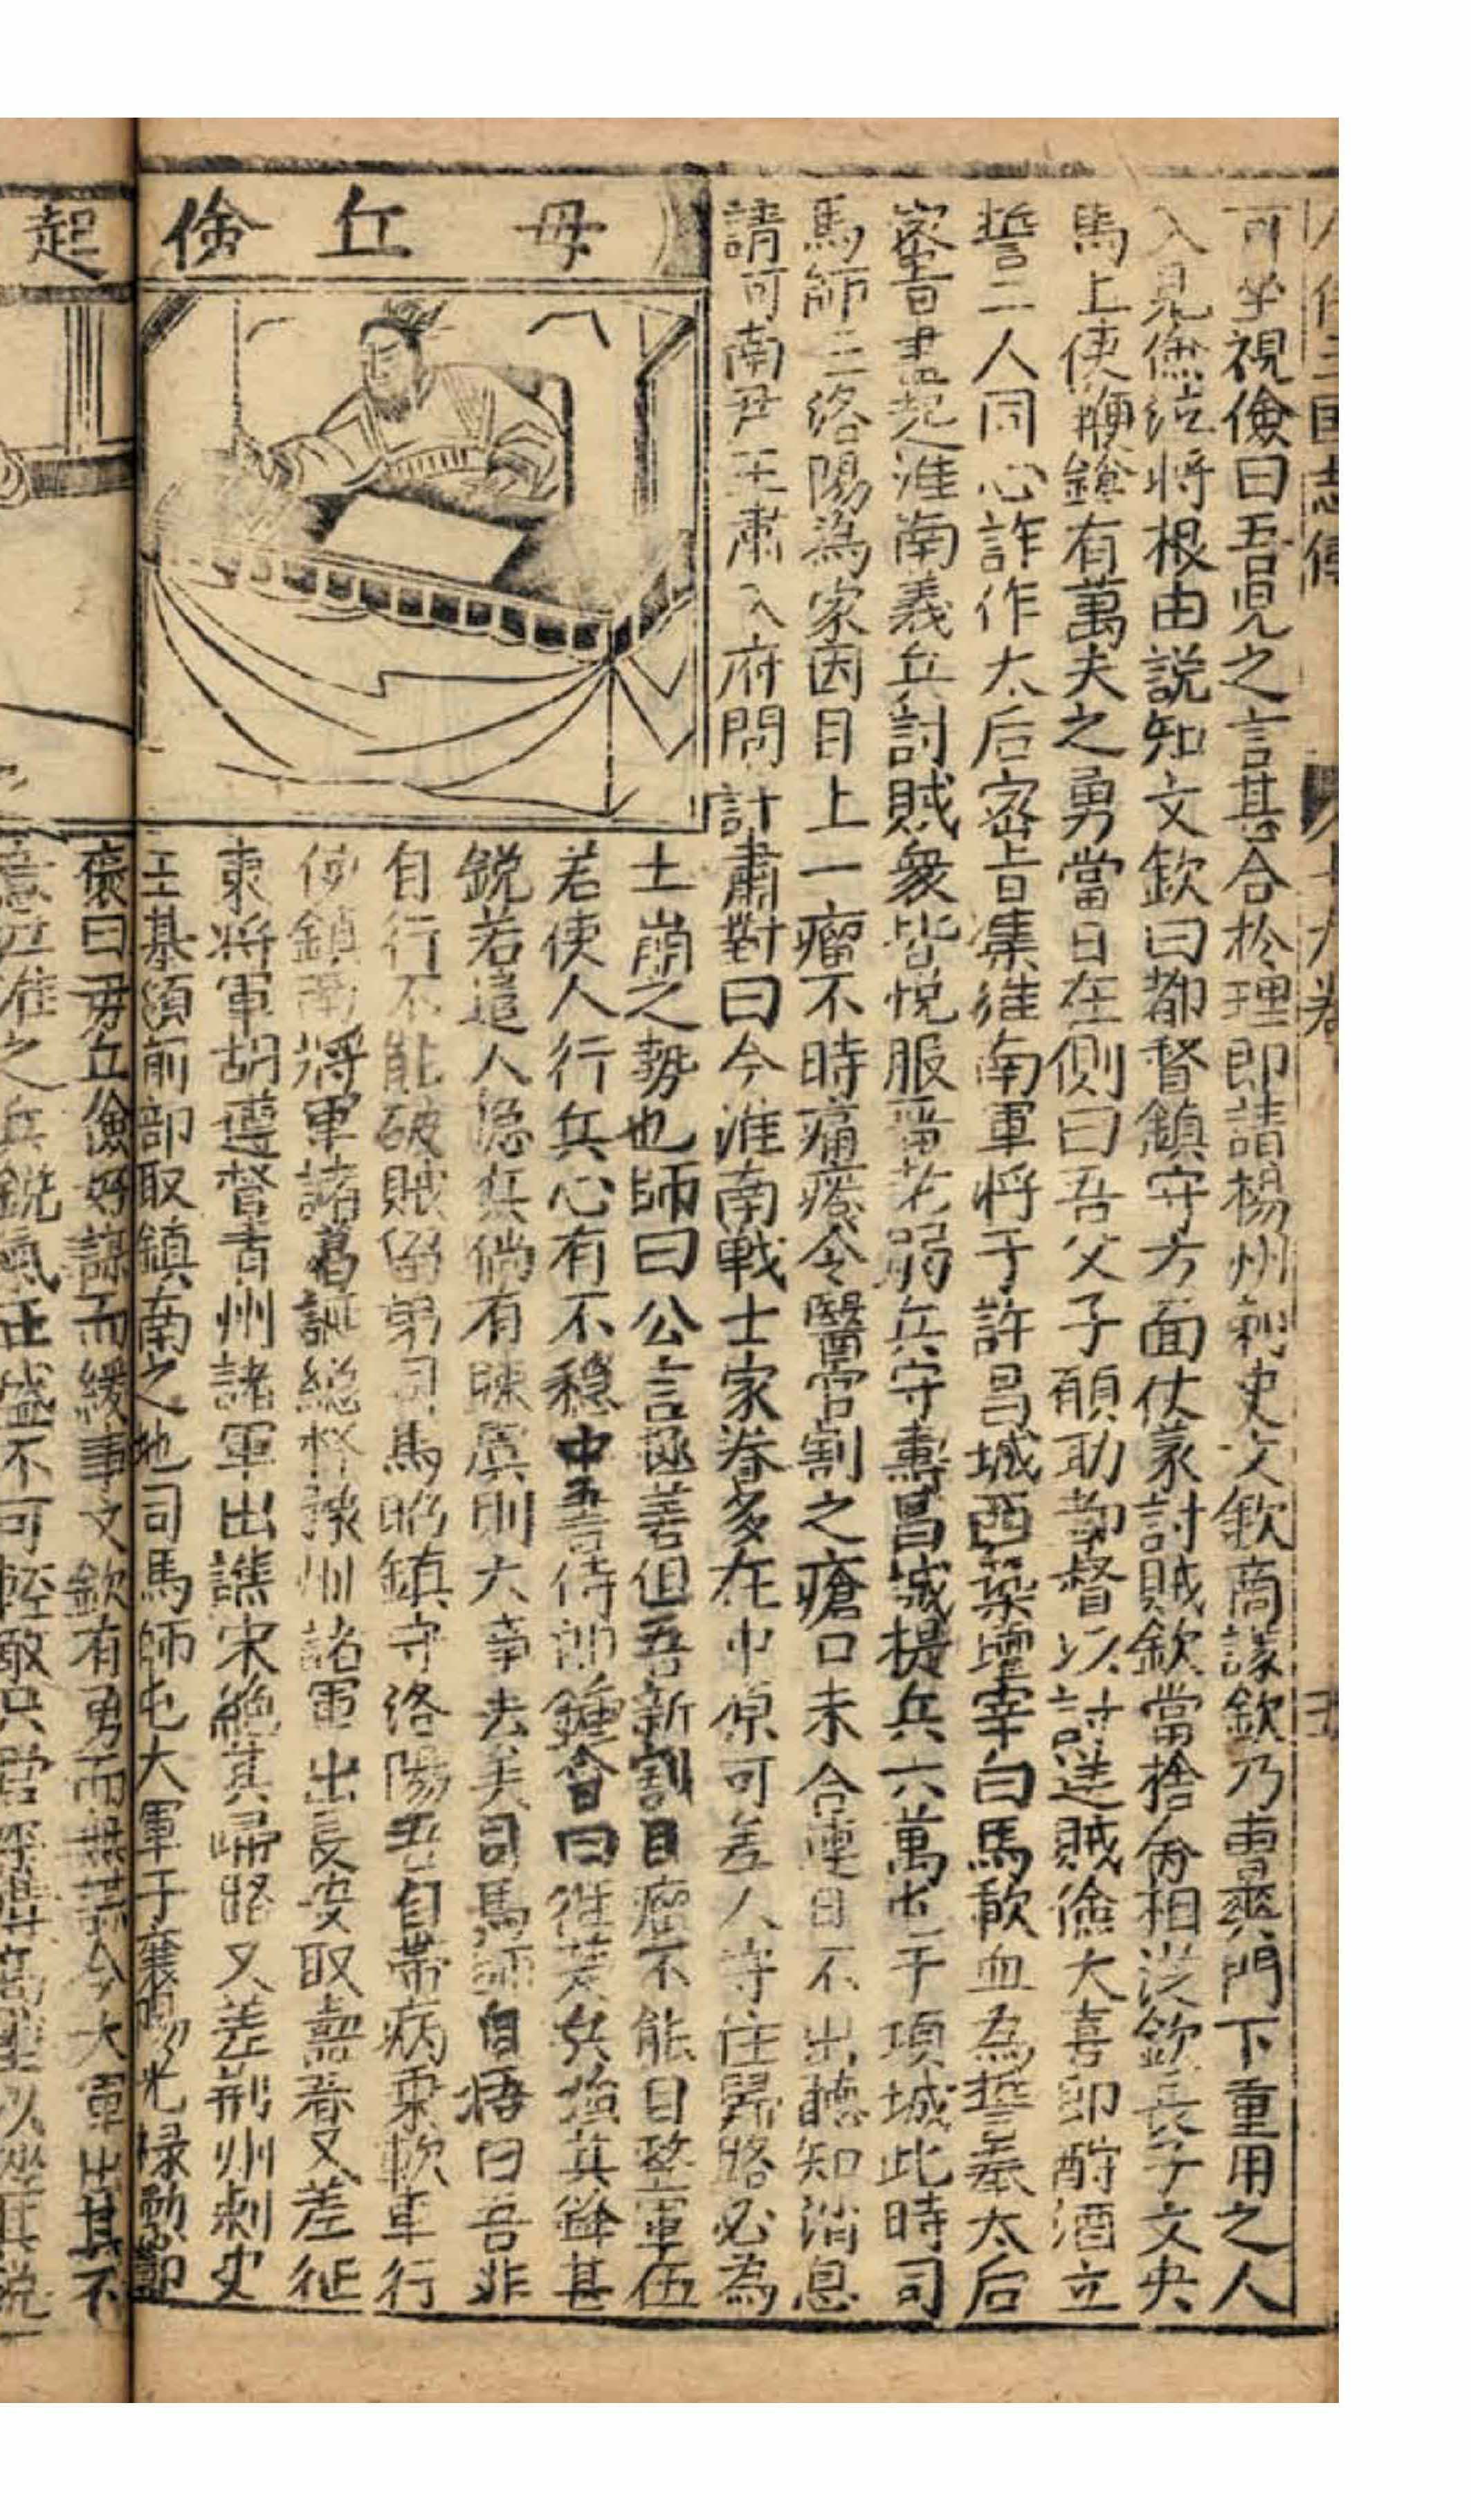 可坐視儉曰吾兒之言甚合於理即請楊州刺史文欽商議欽乃曹爽門下重用之人
入見儉泣將根由說知文欽曰都督鎮守方面仗義討賊欽當捨命相從欽長子文央
馬上使鞭鎗有萬夫之勇當日在側曰吾父子願助都督以討逆賊儉大喜即酹酒立
誓二人同心詐作太后密旨集淮南軍將于許昌城西築壇宰白馬歃血為誓奉太后
密旨盡起淮南義兵討賊衆皆悅服留老弱兵守壽昌城提兵六萬屯于項城此時司
馬師在洛陽為家因目上一瘤不時痛癢令醫官割之瘡口未合連日不出聽知消息
請河南尹王肅入府問計肅對曰今淮南戰士家眷多在中原可差人守住歸路必為
土崩之勢也師曰公言極善但吾新割目瘤不能自整軍伍
若使人行兵心有不穩中書侍郎鍾會曰淮楚兵強其鋒甚
銳若遣人總兵倘有踈虞則大事去矣司馬師自悟曰吾非
自行不能破賊留弟司馬昭鎮守洛陽吾自帶病乘軟車行
使鎮南將軍諸葛誕總督豫州諸軍出長安取壽春又差征
東將軍胡遵督青州諸軍出譙宋絕其歸路又差荊州刺史
王基領前部取鎮南之地司馬師屯大軍于襄陽光祿勳鄭
袤曰毋丘儉好謀而緩事文欽有勇而無謀今大軍出其不
意江淮之兵銳氣正盛不可輕敵只宜深溝高壘以挫其銳
毋丘儉
起
三国志傳
十九卷